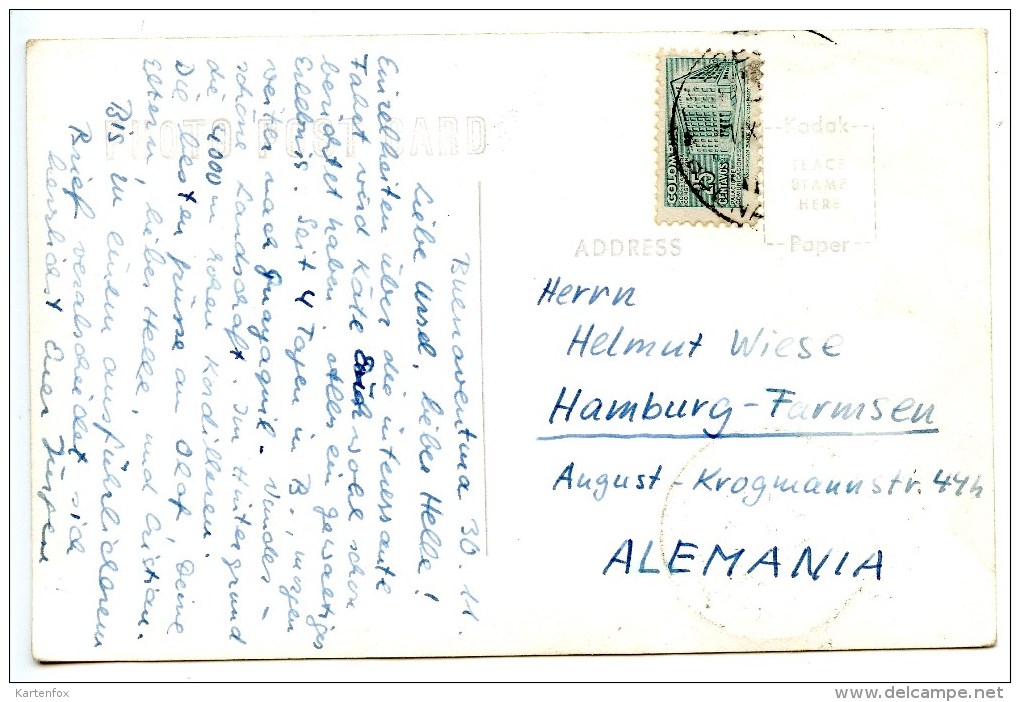 Buenaventura 30. 11.
Liebe Ursel, lieber Helle!
Einzelheiten über die interessante
Fahrt wird Käte Euch wohl schon
berichtet haben. Alles ein gewaltiges
Erlebnis. Seit 4 Tagen in B., morgen
weiter nach Guayaquil. Wunder-
schöne Landschaft. Im Hintergrund
die 4000 m hohen Kordilleren.
Die besten Grüsse an Olaf, Deine
Eltern, lieber Helle, und Cristian.
Bis zu einem ausführlicheren
Brief verabschiedet sich
herzlichst Euer Jürgen
PHOTO POST CARD
COLOMBIA
CENTAVOS
Kodak
PLACE
STAMP
HERE
Paper
ADDRESS
Herrn
Helmut Wiese
Hamburg-Farmsen
August-Krogmannstr. 44h
ALEMANIA
Kartenfox
delcampe.net